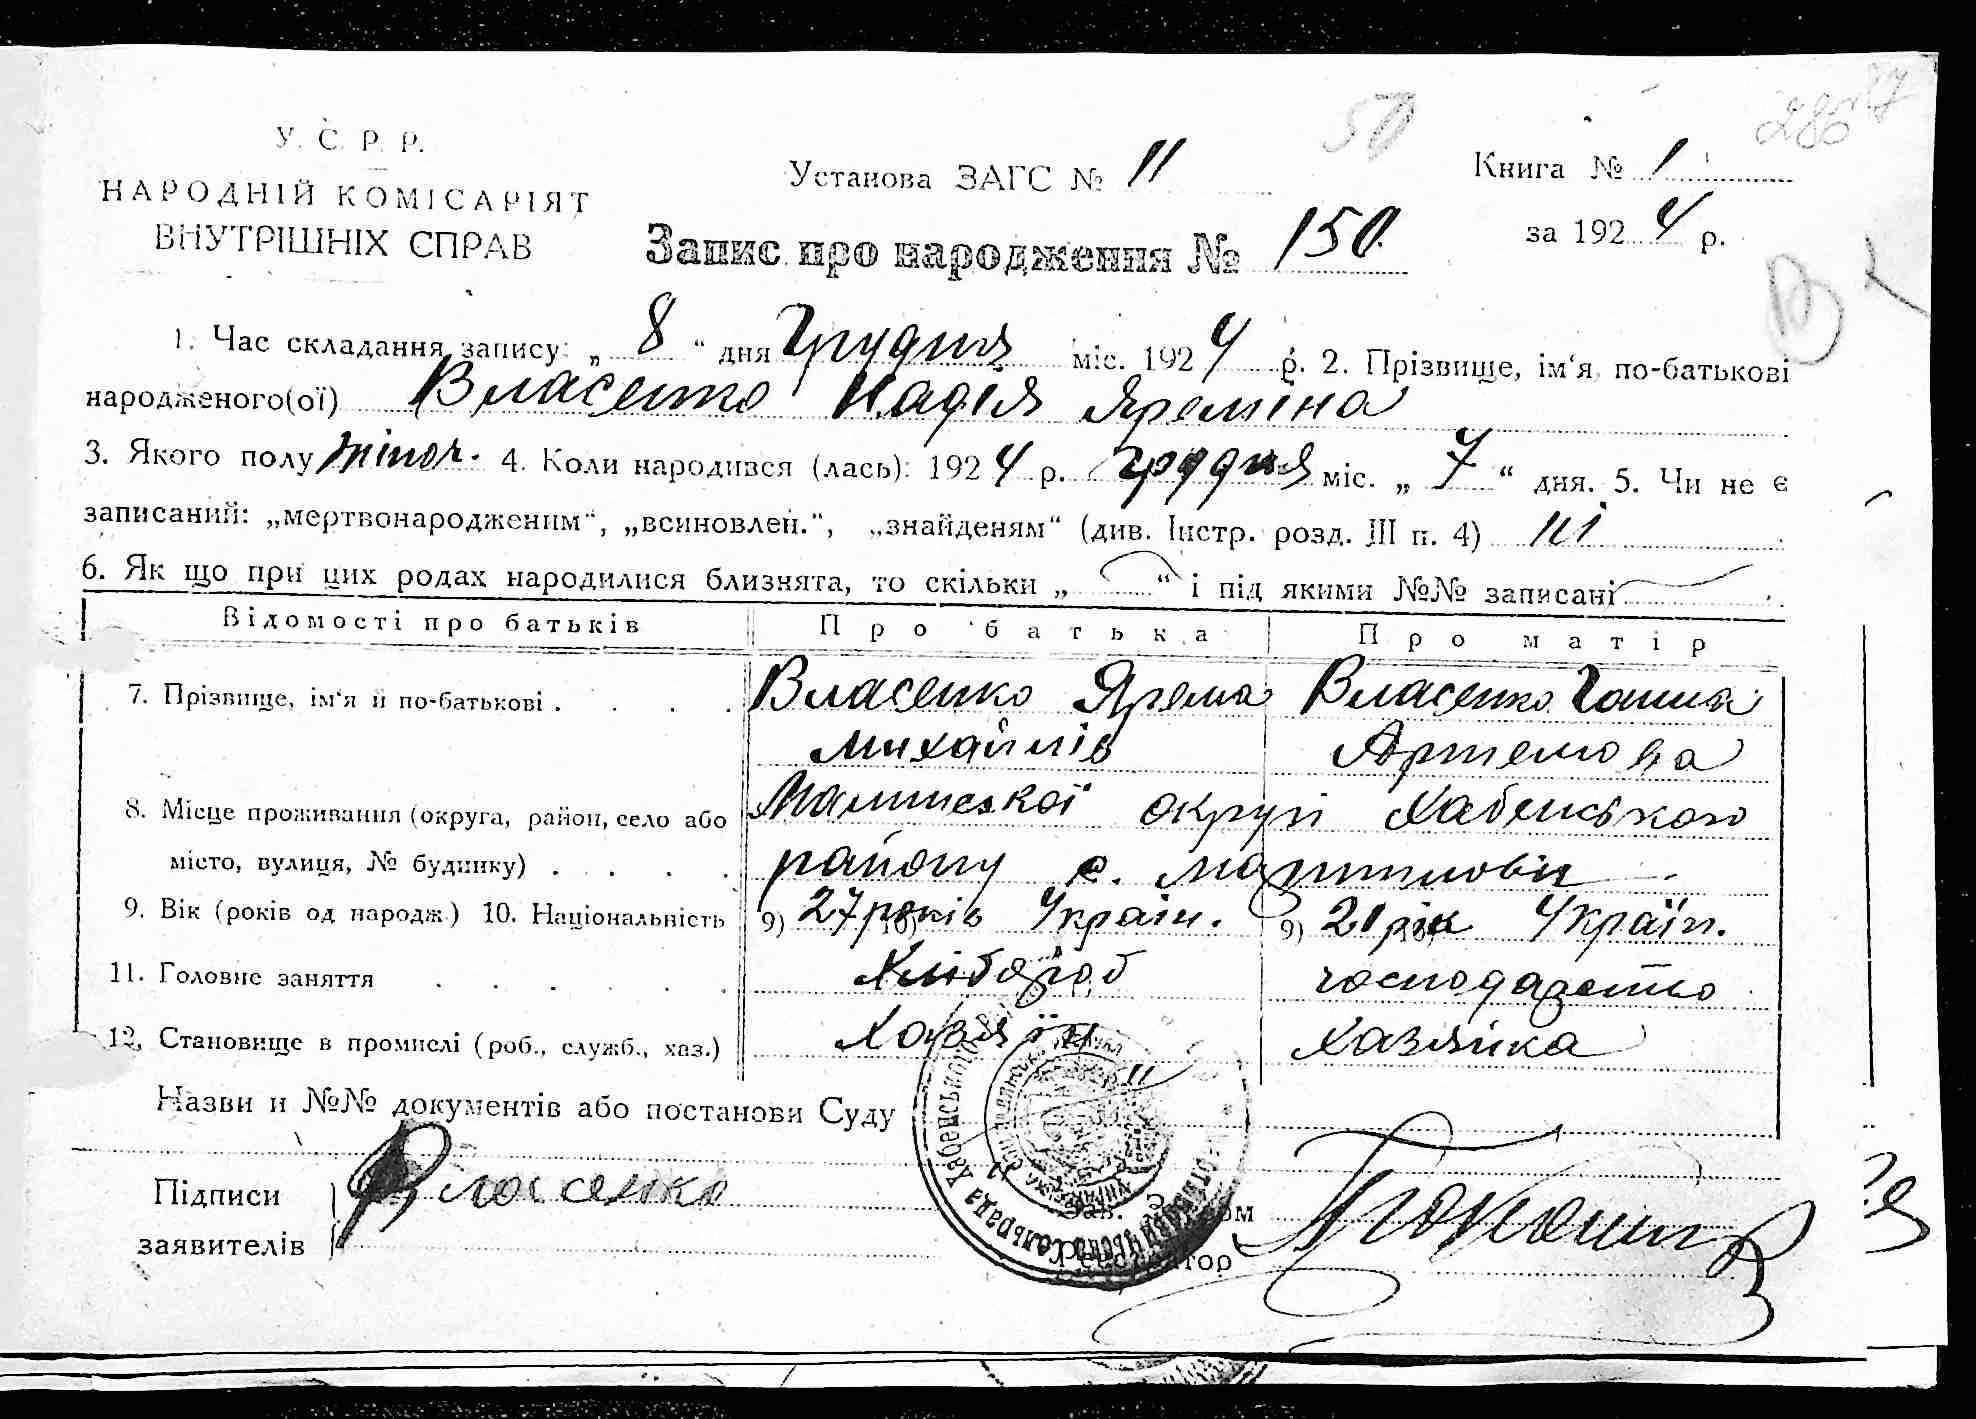 50
286
У. С. Р. Р.
НАРОДНІЙ КОМІСАРІЯТ
ВНУТРІШНІХ СПРАВ
Установа ЗАГС № 11
Книга № 1
за 1924 р.
Запис про народження № 150
1. Час складання запису: „ 8 “ дня Грудня міс. 1924 р. 2. Прізвище, ім‘я, по-батькові
народженого(ої) Власенко Надія Яреміна
3. Якого полу жіноч. 4. Коли народився (лась): 1924 р. грудня міс. „ 7 “ дня. 5. Чи не є
записаний: „мертвонародженим“, „всиновлен.“, „знайденям“ (див. Інстр. розд. III п. 4) ні
6. Як що при цих родах народилися близнята, то скільки „ “ і під якими №№ записані
Відомості про батьків Про батька Про матір
7. Прізвище, ім‘я й по-батькові . . . . Власенко Ярема Власенко Ганна
Михайлів Артемова
8. Місце проживання (округа, район, село або Малинської округи Хабенського
місто, вулиця, № будинку) . . . . району с.
9. Вік (років од народж.) 10. Національність 9) 27 років 10) Україн. 9) 21 рік 10) Україн.
11. Головне заняття . . . . . . Хлібороб господарство
12. Становище в промислі (роб., служб., хаз.) Хазяїн Хазяйка
Назви й №№ документів або постанови Суду
Підписи
заявителів
Власенко
Зав. Загсом
Реєстратор
Сільрада Хабенського